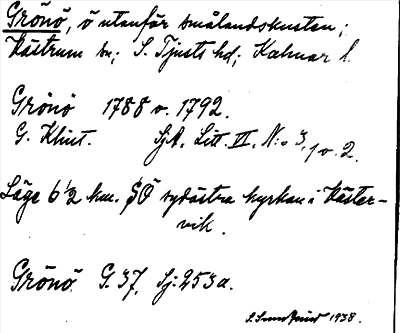 Grönö, ö utanför smålandskusten;
Västrum sn; S. Tjusts hd; Kalmar l.
Grönö 1788 o. 1792.
G. Klint. SjA. Litt. VI. N:o 3, 1 o. 2.
Läge 6 1/2 km. SÖ sydöstra kyrkan i Väster-
vik.
Grönö. G. 37. Sj: 253 a.
1938.